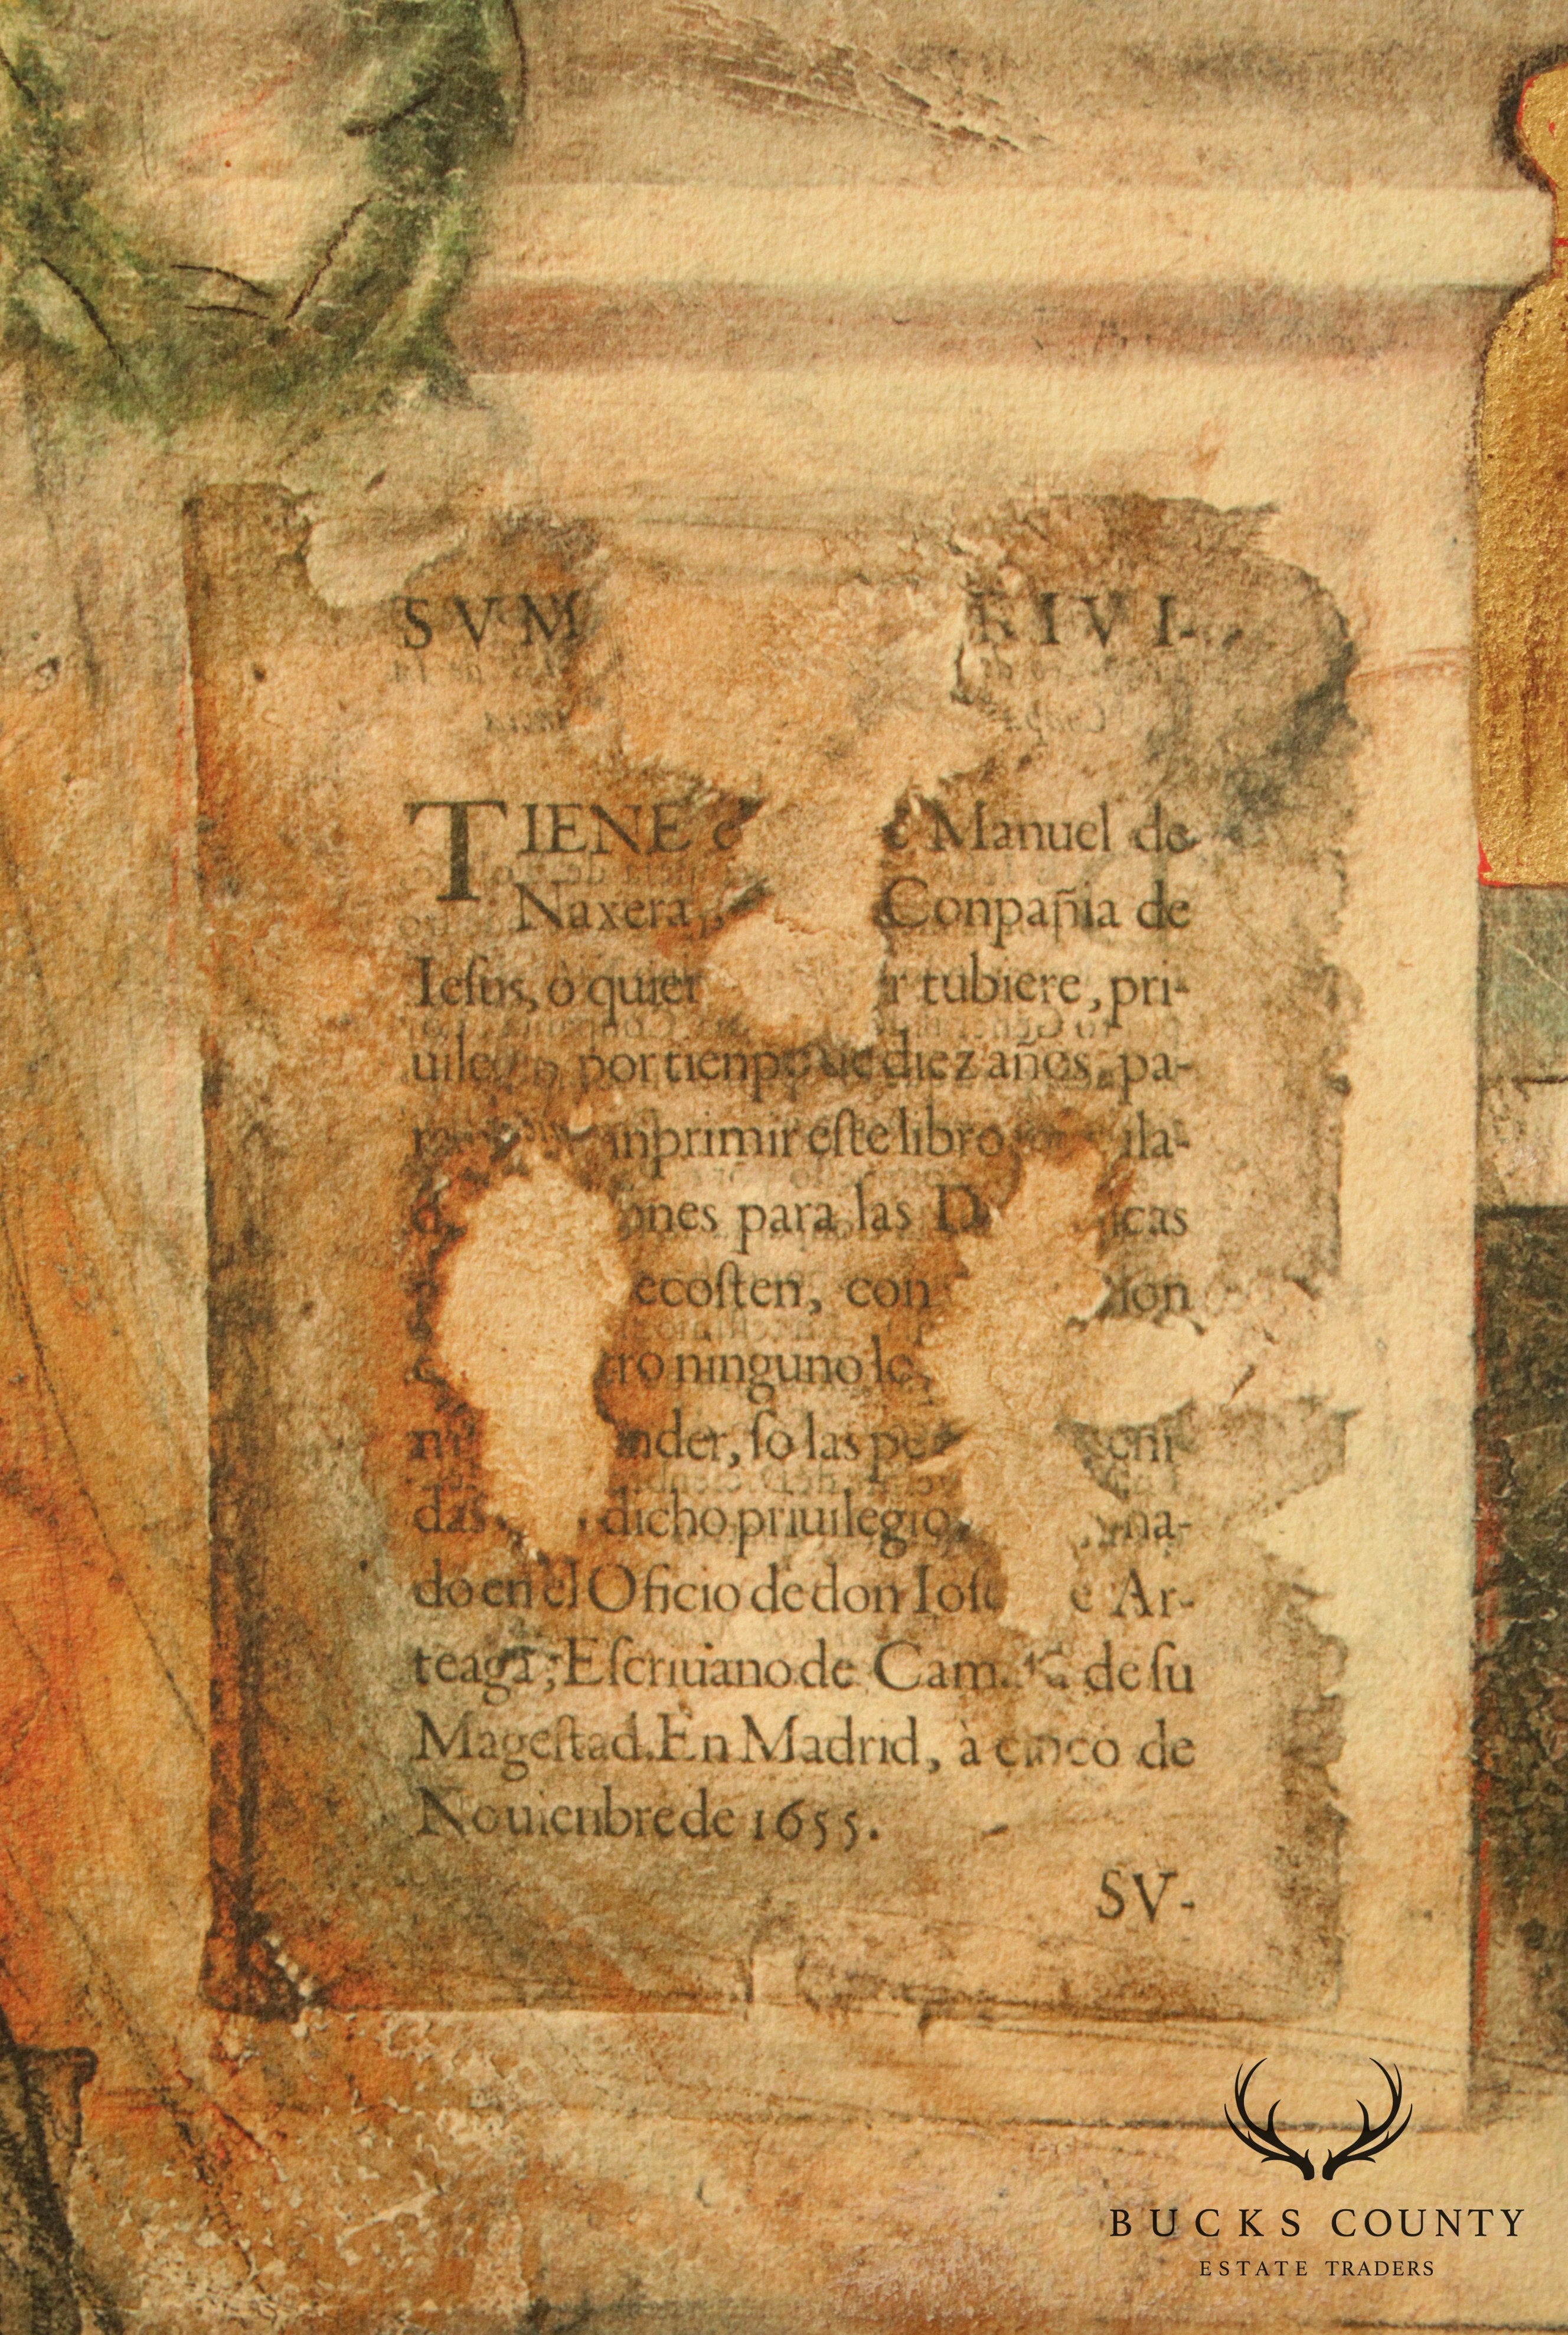 SVM RIVI-
TIENE e Manuel de
Naxera, Conpañia de
Iesus, ò quier r tubiere, pri-
uile por tienpo de diez años, pa-
inprimir este libro ila-
ones para las D icas
ecosten, con ion
tro ninguno le
nder, so las pe
das dicho priuilegio, na-
do en el Oficio de don Iose e Ar-
teaga, Escriuano de Cam de su
Magestad. En Madrid, à cinco de
Nouienbre de 1655.
SV-
BUCKS COUNTY
ESTATE TRADERS